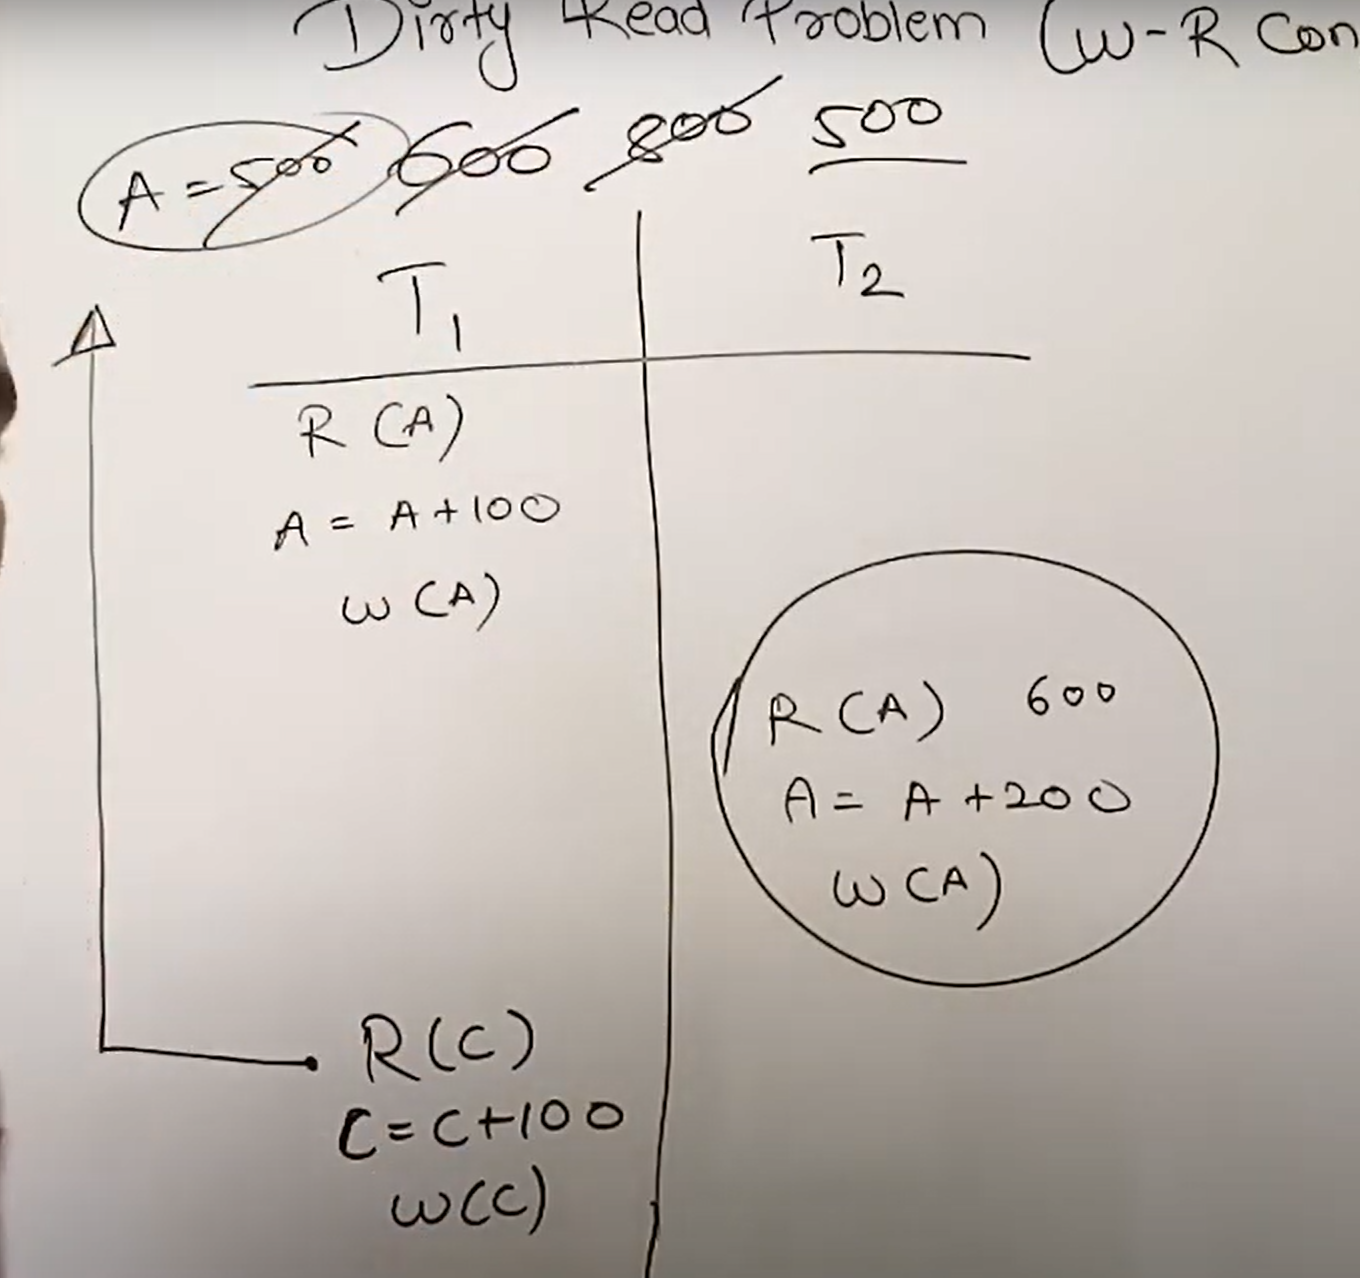 Dirty Read Problem (W-R Con
A = 500 600 800 500
T1 T2
R (A)
A = A + 100
W (A)
R (A) 600
A = A + 200
W (A)
R(C)
C = C + 100
W(C)